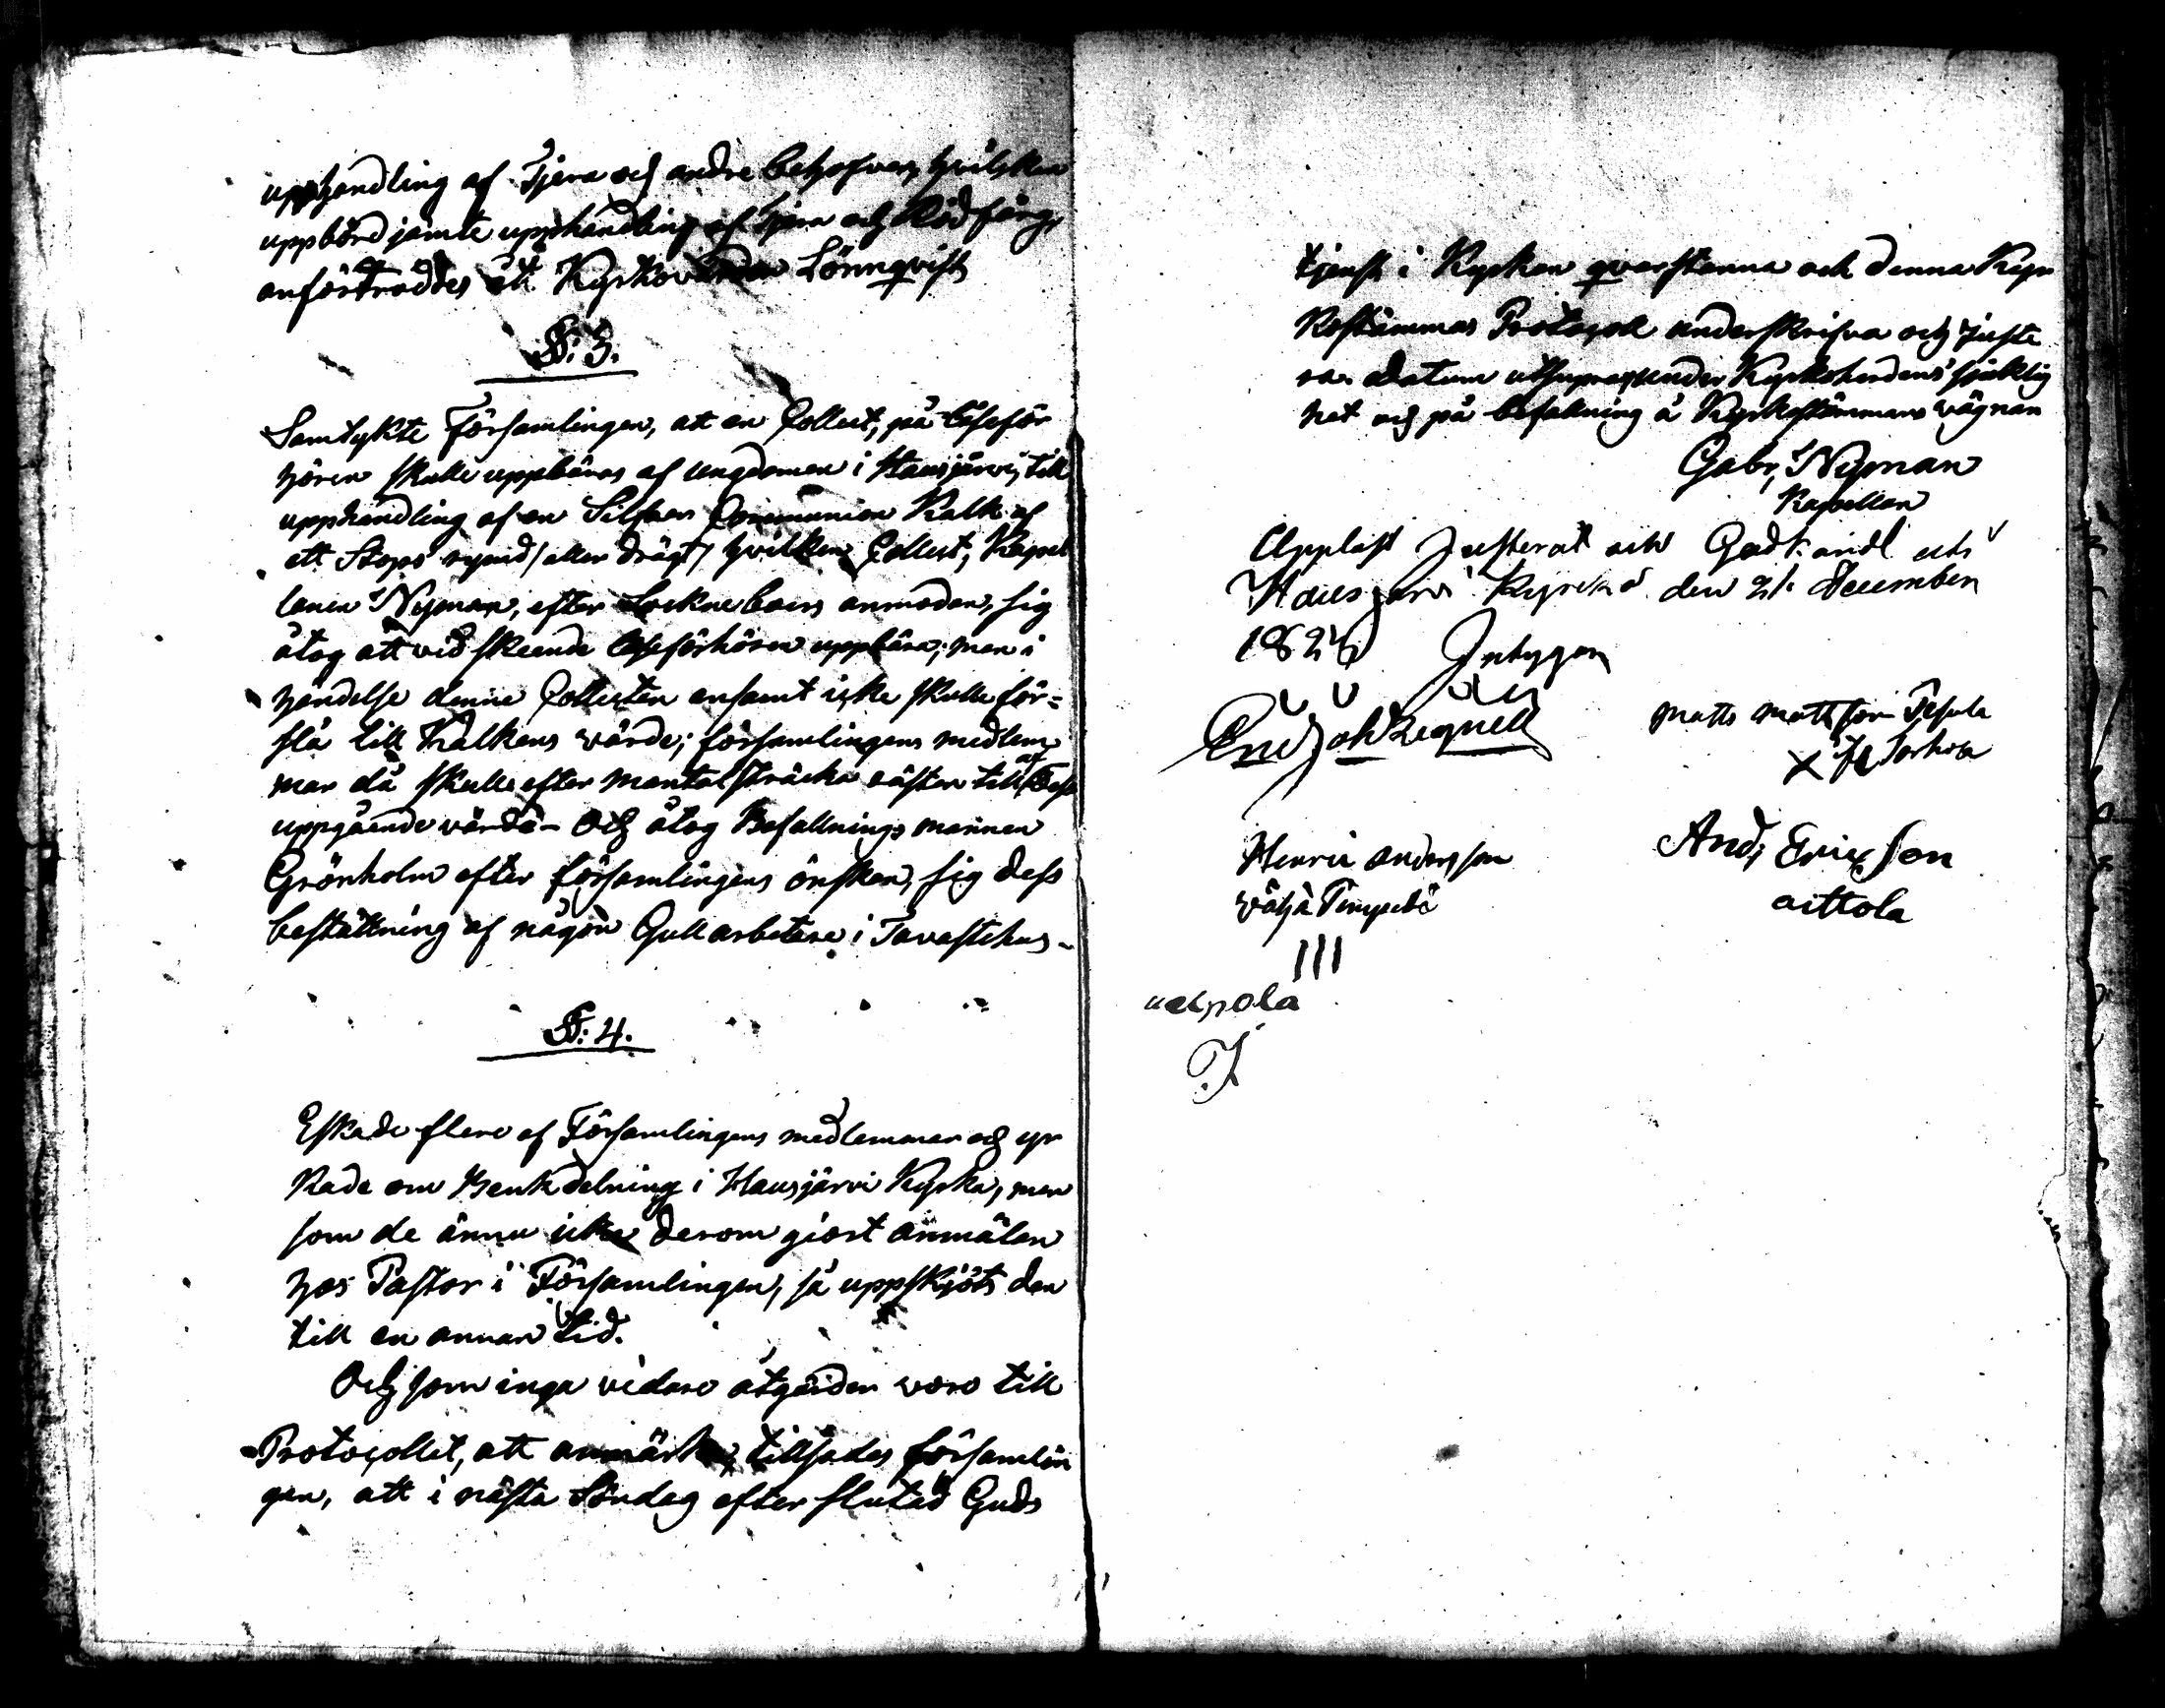 upphandling af Tjera och andre behofver, hvilken
uppbörd jemte upphandling af Tjera och Rödfärg,
anförtroddes åt Kyrkovärden Lönnqvist
§: 3.
Samtykte Församlingen, att en Collect, på Läseför
hören skulle uppbäras af ungdomen i Hausjärvi, till
upphandling af en Silfver Communion Kalk af
ett Stops rymd / eller drägt / hvilken Collect, Kapel
lanen Nyman, efter Sockneboers anmodan, sig
åtog att vid skeende Läseförhören uppbära; men i
händelse denne Collecten ensamt icke skulle för=
slå till Kalkens värde; församlingens medlem
mar då skulle efter Mantal sträcka till af Dess
uppgående värde - Och åtog Befallningsmannen
Grönholm efter församlingens önskan, sig dess
beställning af någon Gullarbetare i Tavastehus -
§: 4.
Eskade flere af Församlingens medlemmar och yr
kade om Benkdelning i Hausjärvi Kyrka, men
som de ännu icke derom giort anmälan
hos Pastor i Församlingen, så uppskjöts den
till en annan tid.
Och som inga vidare åtgärder voro till
Protocollet, att anmärka, tillsades församlin
gen, att i nästa Söndag efter slutad Guds
tjenst i Kyrkan qvarstanna och denna Kyr
kostämmas Protocoll underskrifva och juste
ra. Datum utsupra, under Kyrkoherdens sjuklig
het och på befallning å Kyrkostämmans vägnan
Gabr. Nyman
Kapellan
Uppläst Justerat och Godkändt uti
Hausjärvi Kyrcka den 21 December
182 Intygar
Matts Mattsson
Henric Andersson
And. Ericsson
aittola
III